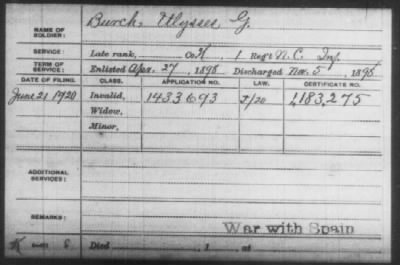 NAME OF SOLDIER: Burch, Ulysses G.
SERVICE: Late rank, Co. H, 1 Reg't N.C. Inf.
TERM OF SERVICE: Enlisted Apr. 27, 1898 Discharged Nov. 5, 1898
DATE OF FILING. CLASS. APPLICATION NO. LAW. CERTIFICATE NO.
June 21 1920 Invalid, 1433693 J/20 1,183,275
Widow,
Minor,
ADDITIONAL SERVICES:
REMARKS: War with Spain
Died , 1 , at